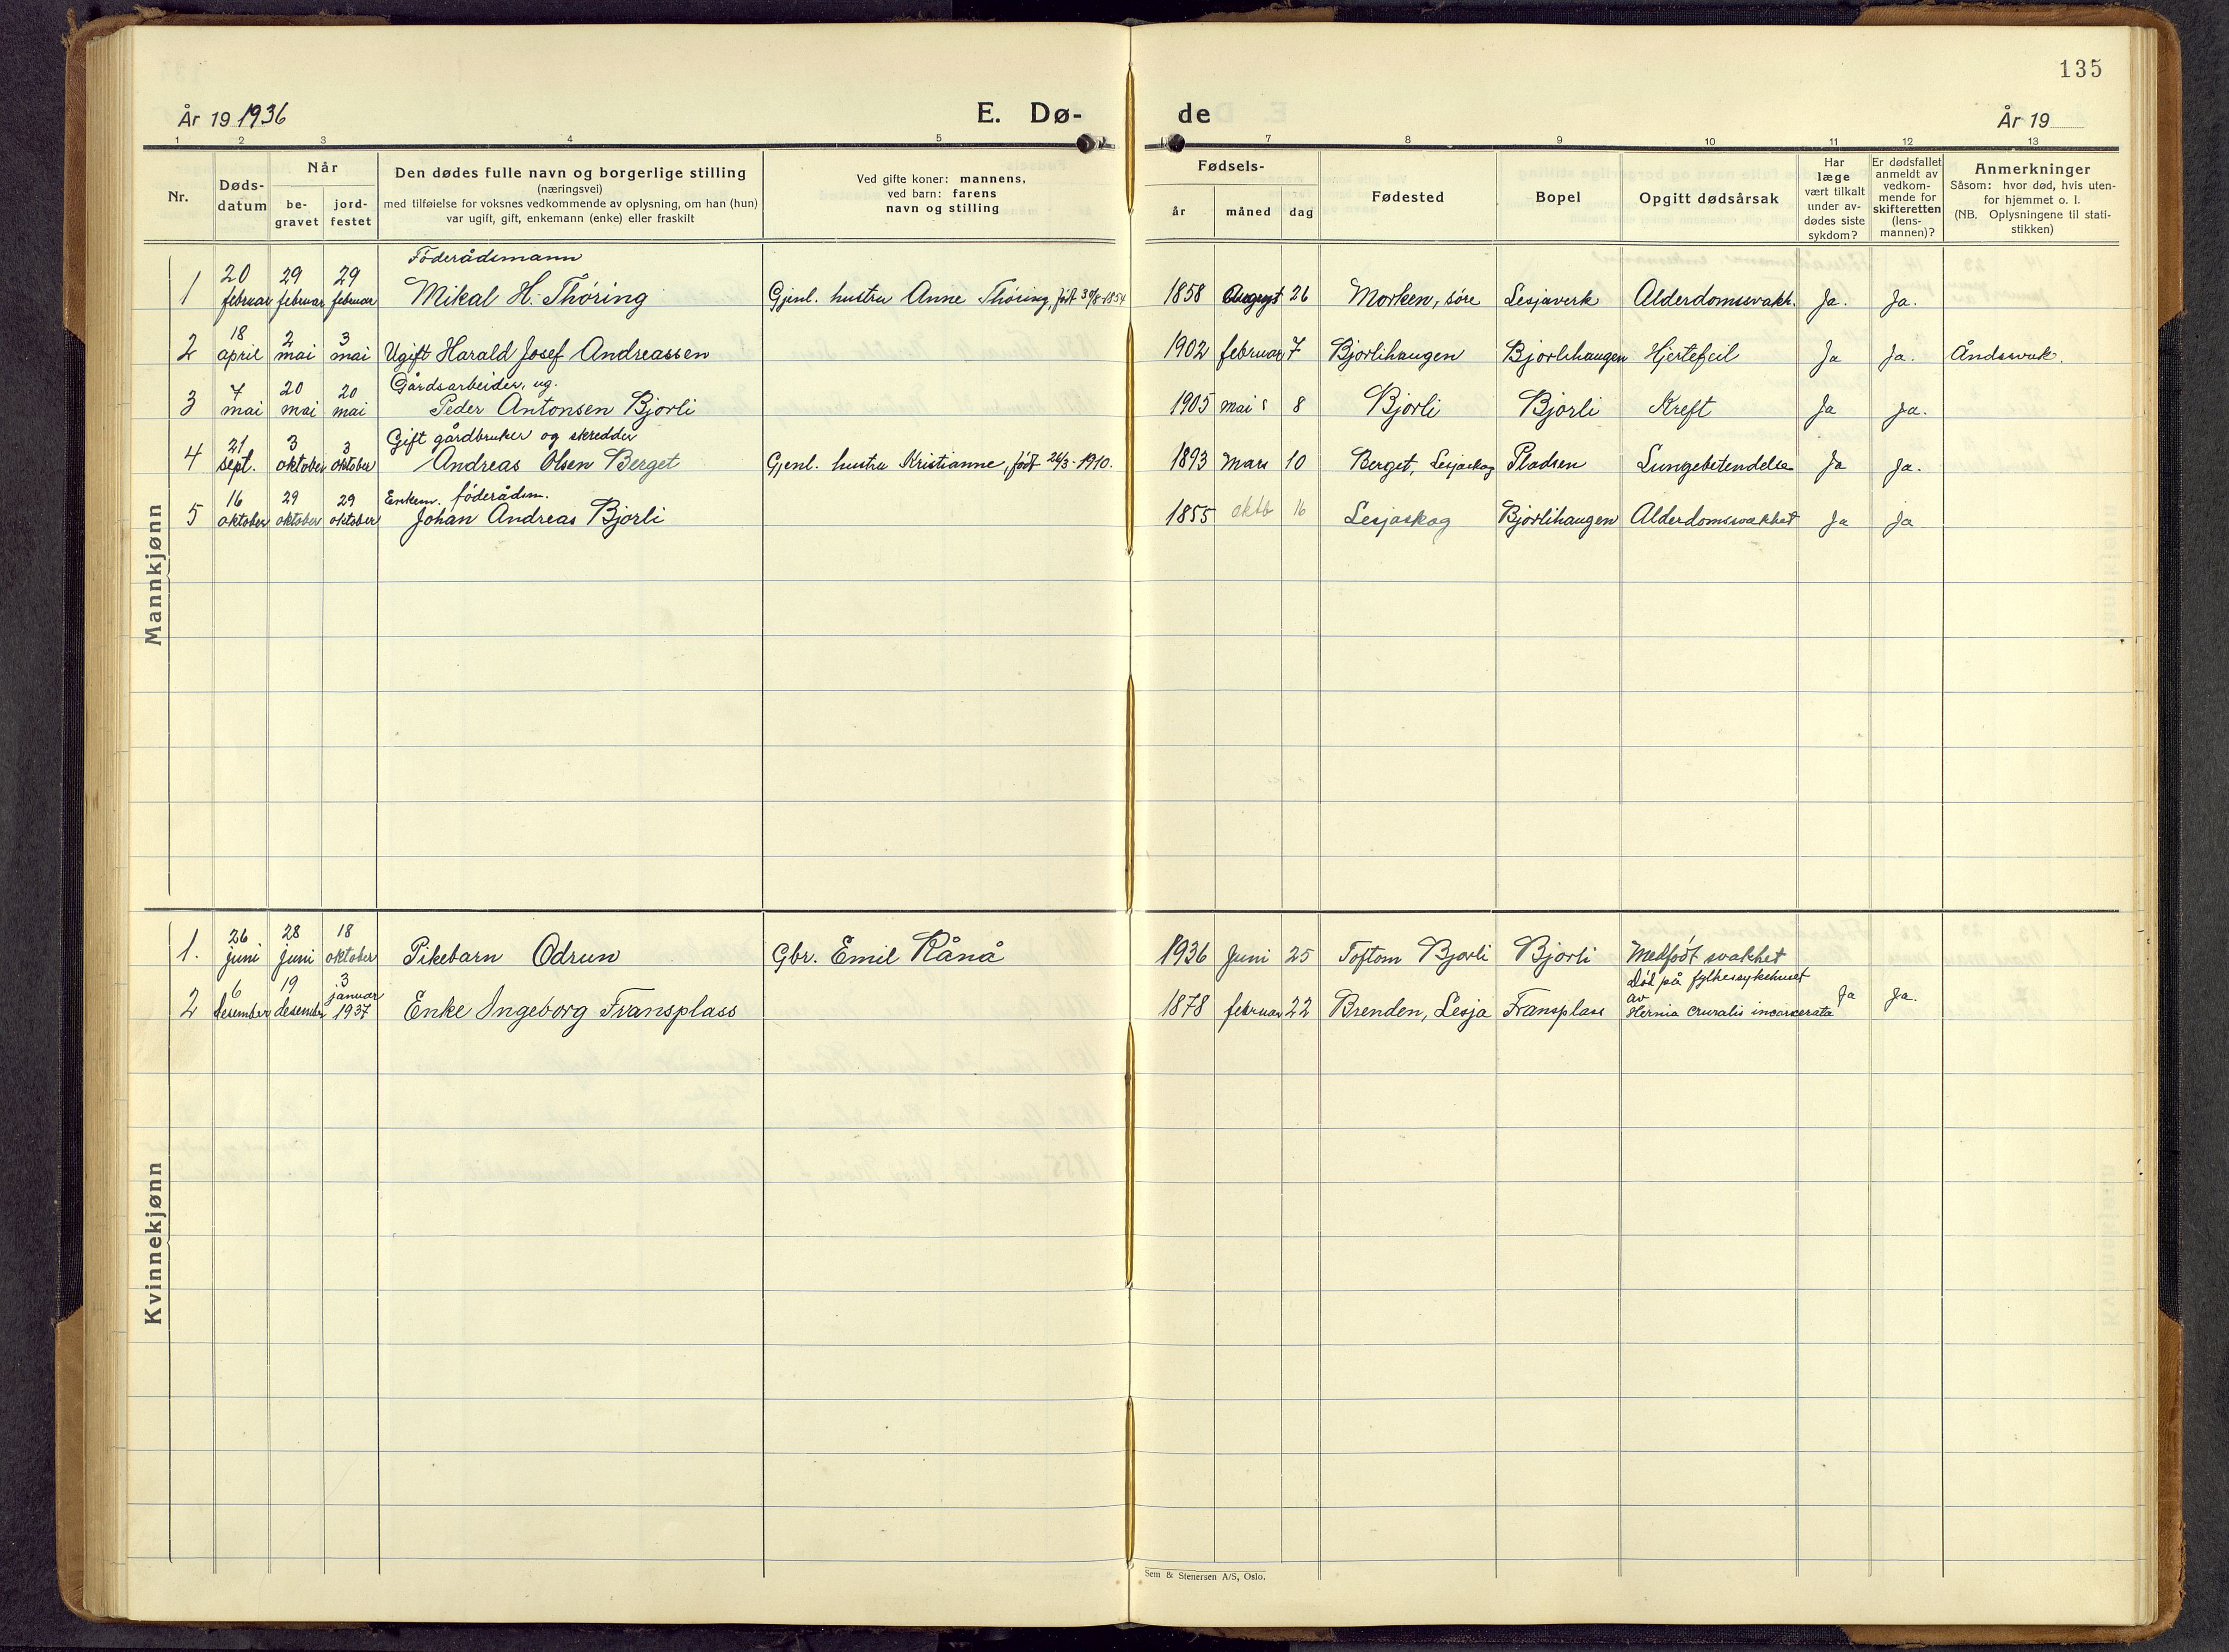 135
År 19 1936
E. Dø-
de
År 19
1 2 3 4 5 7 8 9 10 11 12 13
Nr.
Døds-
datum
Når
be-
gravet
jord-
festet
Den dødes fulle navn og borgerlige stilling
(næringsvei)
med tilføielse for voksnes vedkommende av oplysning, om han (hun)
var ugift, gift, enkemann (enke) eller fraskilt
Ved gifte koner: mannens,
ved barn: farens
navn og stilling
Fødsels-
år
måned
dag
Fødested
Bopel
Opgitt dødsårsak
Har
læge
vært tilkalt
under av-
dødes siste
sykdom?
Er dødsfallet
anmeldt av
vedkom-
mende for
skifteretten
(lens-
mannen)?
Anmerkninger
Såsom: hvor død, hvis uten-
for hjemmet o. l.
(NB. Oplysningene til stati-
stikken)
Mannkjønn
Föderådsmann
1 20 februar 29 februar 29 februar Mikal H. Thöring Gjenl. hustru Anne Thöring, født 30/8-1854 1858 August 26 Morken, söre Lesjaverk Alderdomssvakh. Ja. Ja.
2 18 april 2 mai 3 mai Ugift Harald Josef Andreassen 1902 februar 7 Bjorlihaugen Bjorlihaugen Hjertefeil Ja Ja. Åndssvak.
Gårdsarbeider, ug.
3 7 mai 20 mai 20 mai Peder Antonsen Bjorli 1905 mai 8 Bjorli Bjorli Kreft Ja Ja.
Gift gårdbruker og skredder
4 21 sept. 3 oktober 3 oktober Andreas Olsen Berget Gjenl. hustru Kristianne, født 26/3-1910. 1893 Mars 10 Berget, Lesjaskog Pladsen Lungebetendelse Ja Ja.
Enkem. föderådsm.
5 16 oktober 29 oktober 29 oktober Johan Andreas Bjorli 1855 oktb 16 Lesjaskog Bjorlihaugen Alderdomssvakhet Ja Ja
Kvinnekjønn
1. 26 juni 28 juni 18 oktober Pikebarn Odrun Gbr. Emil Rånå 1936 Juni 25 Toftom Bjorli Bjorli Medfödt svakhet
2 6 desember 19 desember 3 januar 1937 Enke Ingeborg Fransplass 1878 februar 22 Brenden, Lesja Fransplass Död på fylkessykehuset av Hernia cruralis incarcerata Ja Ja.
Sem & Stenersen A/S, Oslo.